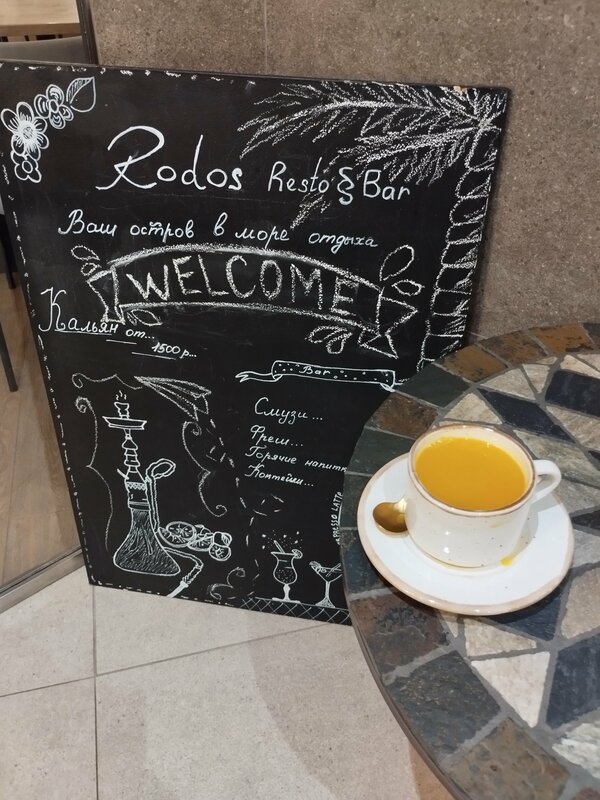 Rodos Resto & Bar
Ваш остров в море отдыха
WELCOME
Кальян от...
1500 р...
Bar
Смузи...
Фреш...
Горячие напитк
Коктейли...
LATTE